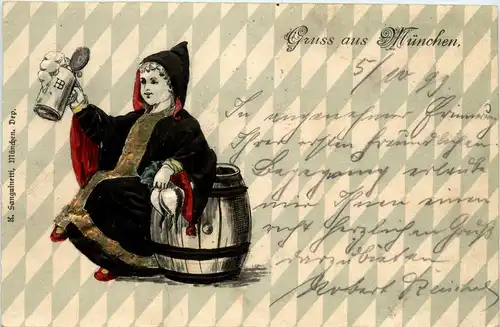 Gruss aus München.
5/10 99
In angenehmer Erinnerung
Ihrer ersten freundlichen
Begegnung erlaube
mir Ihnen einen
recht herzlichen Gruß
darzubieten
Robert
HB
K. Sanguinetti, München. Dep.